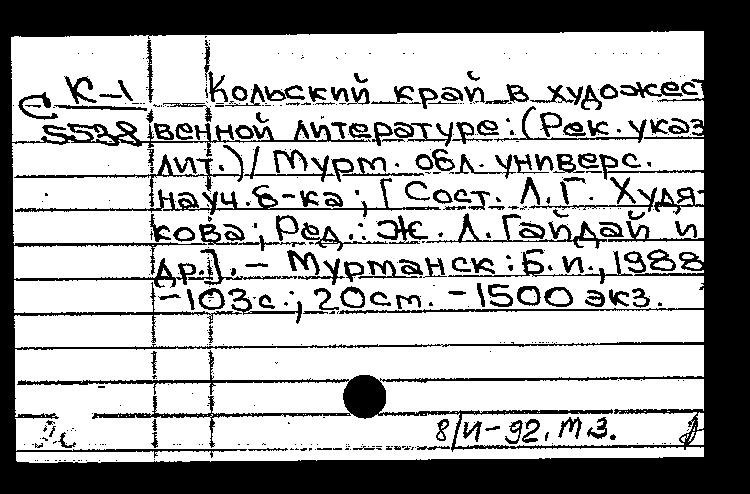 С К-1 Кольский край в художест
5538 венной литературе: (Рек. указ
лит.) / Мурм. обл. универс.
науч. б-ка; [Сост. Л. Г. Худя-
кова; Ред.: Ж. Л. Гайдай и
др.]. - Мурманск: Б. и., 1988
- 103 с.; 20 см. - 1500 экз.
8/II-92. М.З.